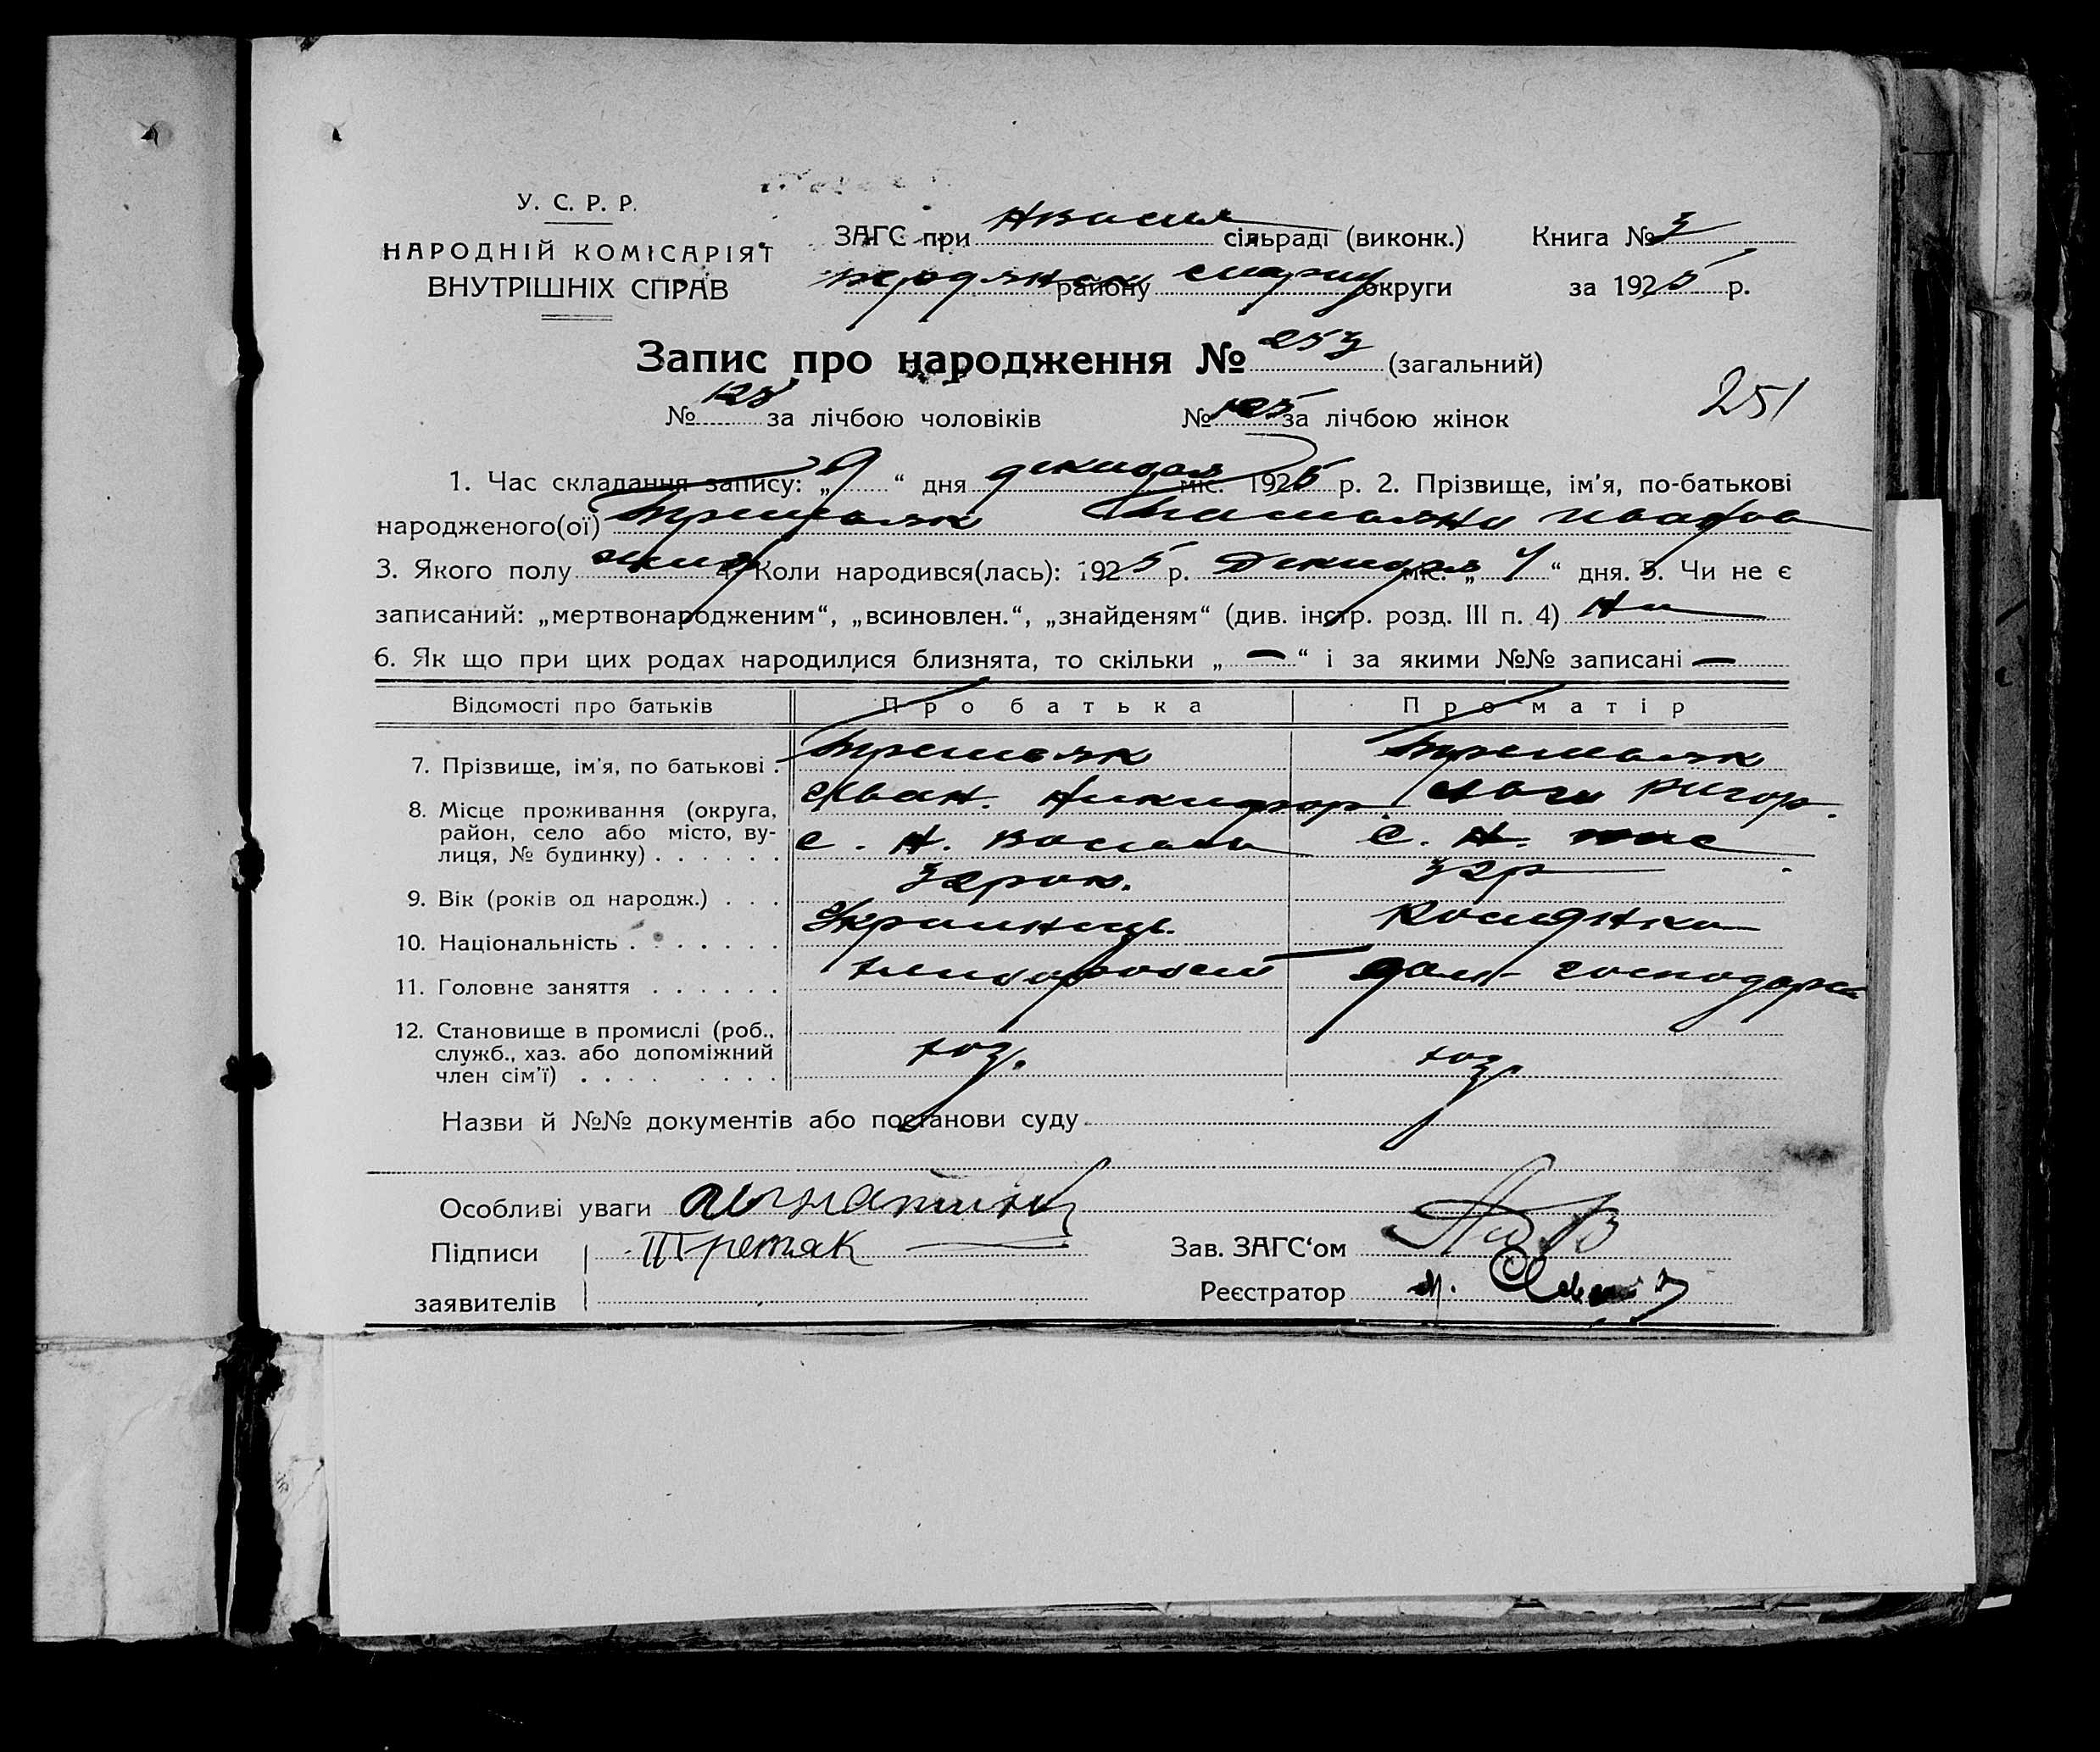 У. С. Р. Р.
НАРОДНІЙ КОМІСАРІЯТ
ВНУТРІШНІХ СПРАВ
ЗАГС при сільраді (виконк.) Книга № 3
району округи за 1925 р.
Запис про народження № 253 (загальний)
№ 128 за лічбою чоловіків № 125 за лічбою жінок
251
1. Час складання запису: „9“ дня декабря міс. 1925 р. 2. Прізвище, ім'я, по-батькові
народженого(ої) Третьяк Татьяна
3. Якого полу 4. Коли народився(лась): 1925 р. Декабря міс. „4“ дня. 5. Чи не є
записаний: „мертвонародженим“, „всиновлен.“, „знайденям“ (див. інстр. розд. III п. 4) Ни
6. Як що при цих родах народилися близнята, то скільки „—“ і за якими №№ записані —
Відомості про батьків Про батька Про матір
7. Прізвище, ім'я, по батькові . Третьяк Третьяк
Иван. Никифор. Ригор.
8. Місце проживання (округа, район, село або місто, вулиця, № будинку) . . . . . . с. Н. С. Н.
9. Вік (років од народж.) . . . 32 рок. 32 р
10. Національність . . . . . . . Украинець.
11. Головне заняття . . . . . . хлибороб дом- господарст
12. Становище в промислі (роб., служб., хаз. або допоміжний член сім'ї) . . . . . . . . . хоз. хоз
Назви й №№ документів або постанови суду
Особливі уваги
Підписи Третяк Зав. ЗАГС‘ом
заявителів Реєстратор